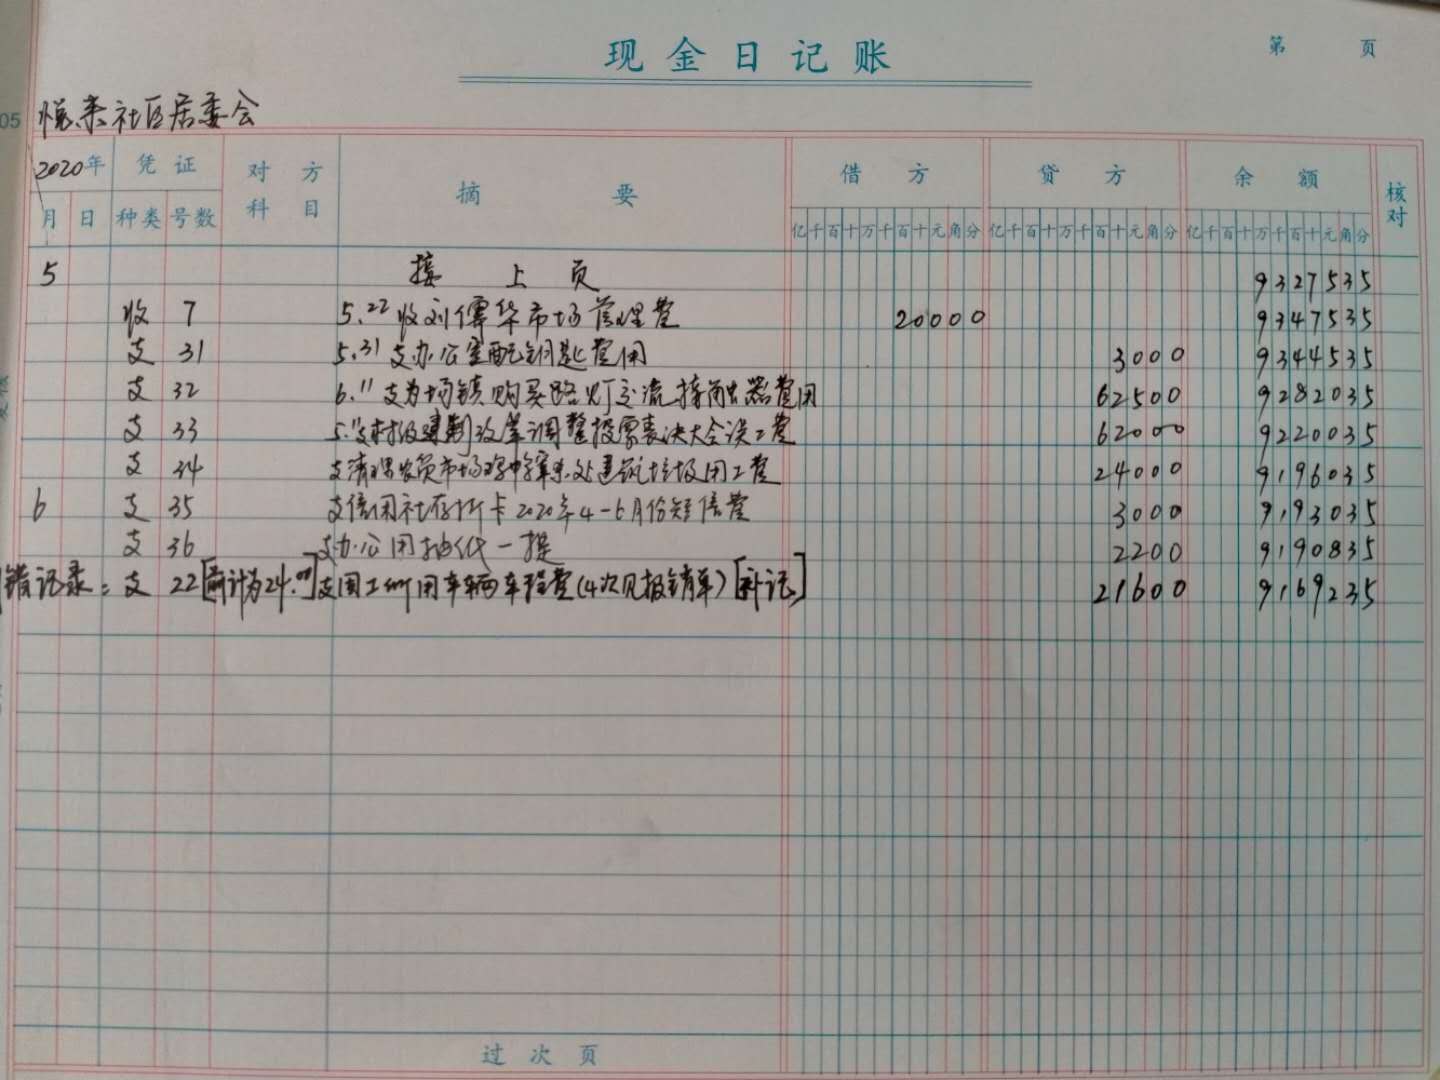 现金日记账
第 页
05
悦来社区居委会
2020年 凭证 对方科目 摘要 借方 贷方 余额 核对
月 日 种类 号数 亿千百十万千百十元角分 亿千百十万千百十元角分 亿千百十万千百十元角分
5 接上页 9327535
收 7 5.22收刘傳华市场管理费 20000 9347535
支 31 5.31支办公室配钥匙费用 3000 9344535
支 32 6.11支为场镇购买路灯交流接触器费用 62500 9282035
支 33 5.11支村级建制改革调整投票表决大会误工费 62000 9220035
支 34 支清理农贸市场 处建筑垃圾用工费 24000 9196035
6 支 35 支信用社存折卡2020年4-6月份短信费 3000 9193035
支 36 支办公用抽纸一提 2200 9190835
错记录：支 22[前计为24.00]支因工所用车辆车程费(4次见报销单)[补记] 21600 9169235
过次页